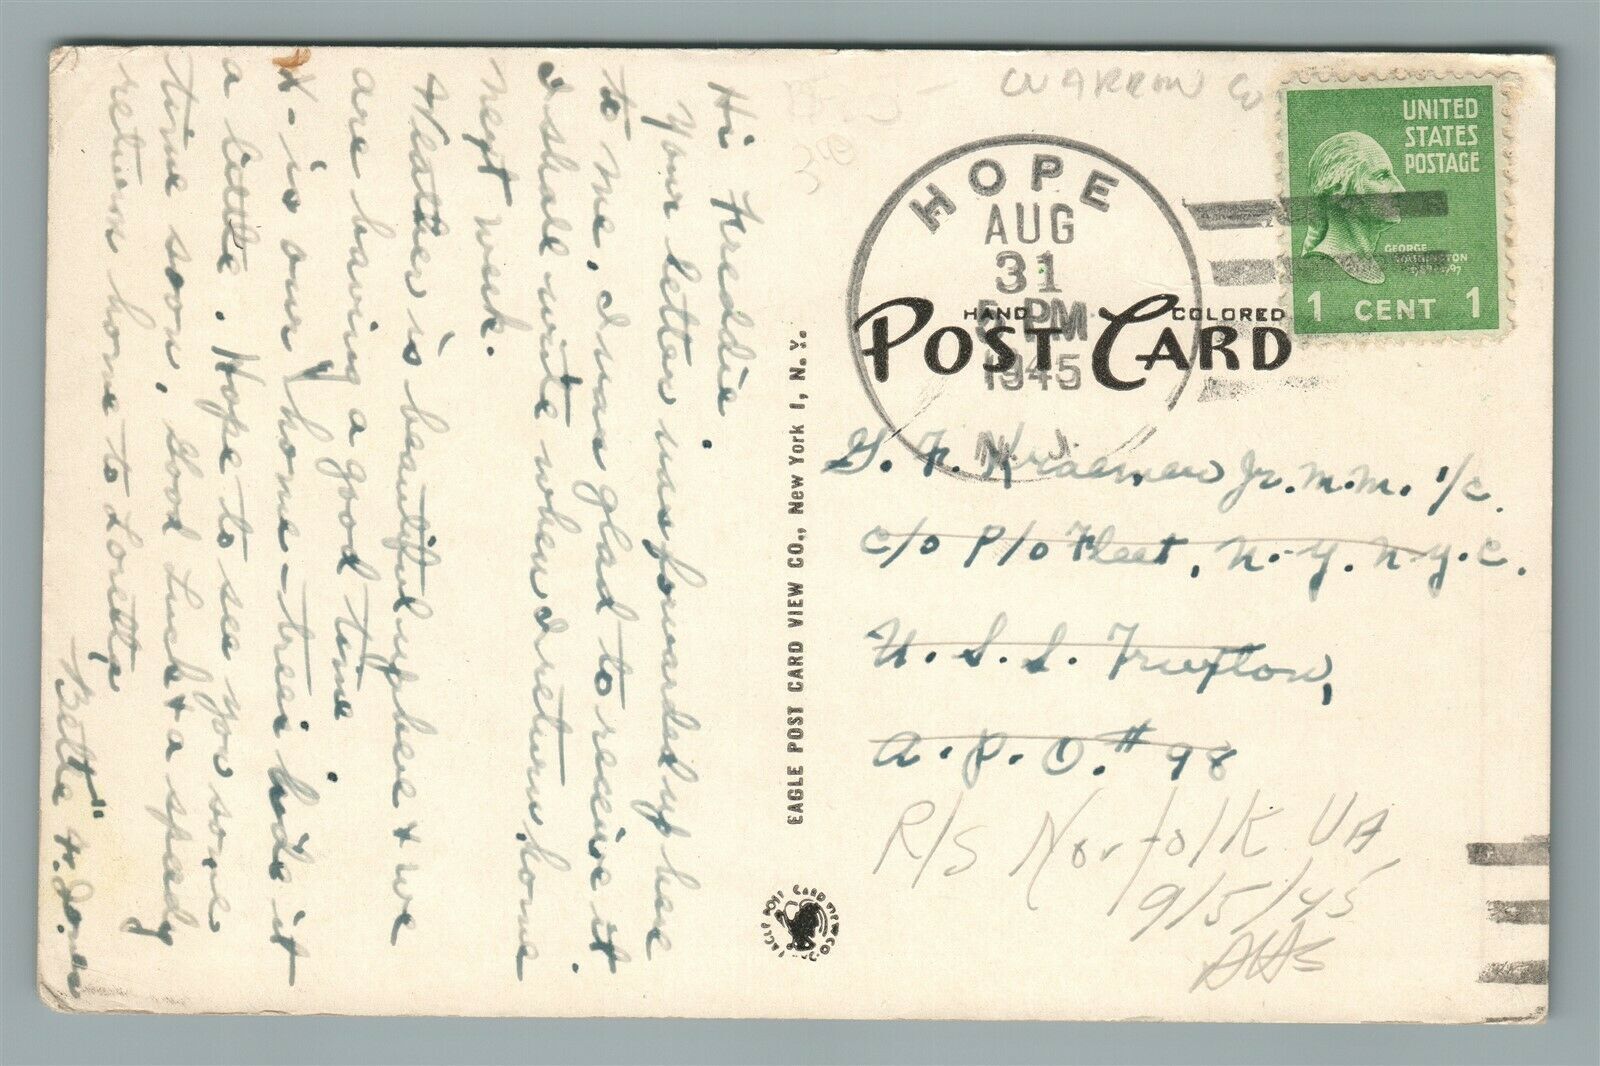 Hi Freddie.
Your letter was forwarded up here
to me. I was glad to receive it
I shall write when I return home
next week.
Weather is beautiful up here & we
are having a good time
X - is our home - trees hide it
a little. Hope to see you some
time soon. Good Luck & a speedy
return home to Loretta
Bette H. Jones
EAGLE POST CARD VIEW CO., New York 1, N. Y.
EAGLE POST CARD VIEW CO.
WARREN Co
HOPE
AUG
31
PM
1945
N. J.
UNITED
STATES
POSTAGE
GEORGE
WASHINGTON
1789-1797
1 CENT 1
HAND COLORED
POST CARD
G. F. Kraemer Jr. M.M. 1/c.
c/o P/o Fleet, N.Y. N.Y.C.
U.S.S. Truxton,
A.P.O. # 98
R/S Norfolk VA,
9/5/45